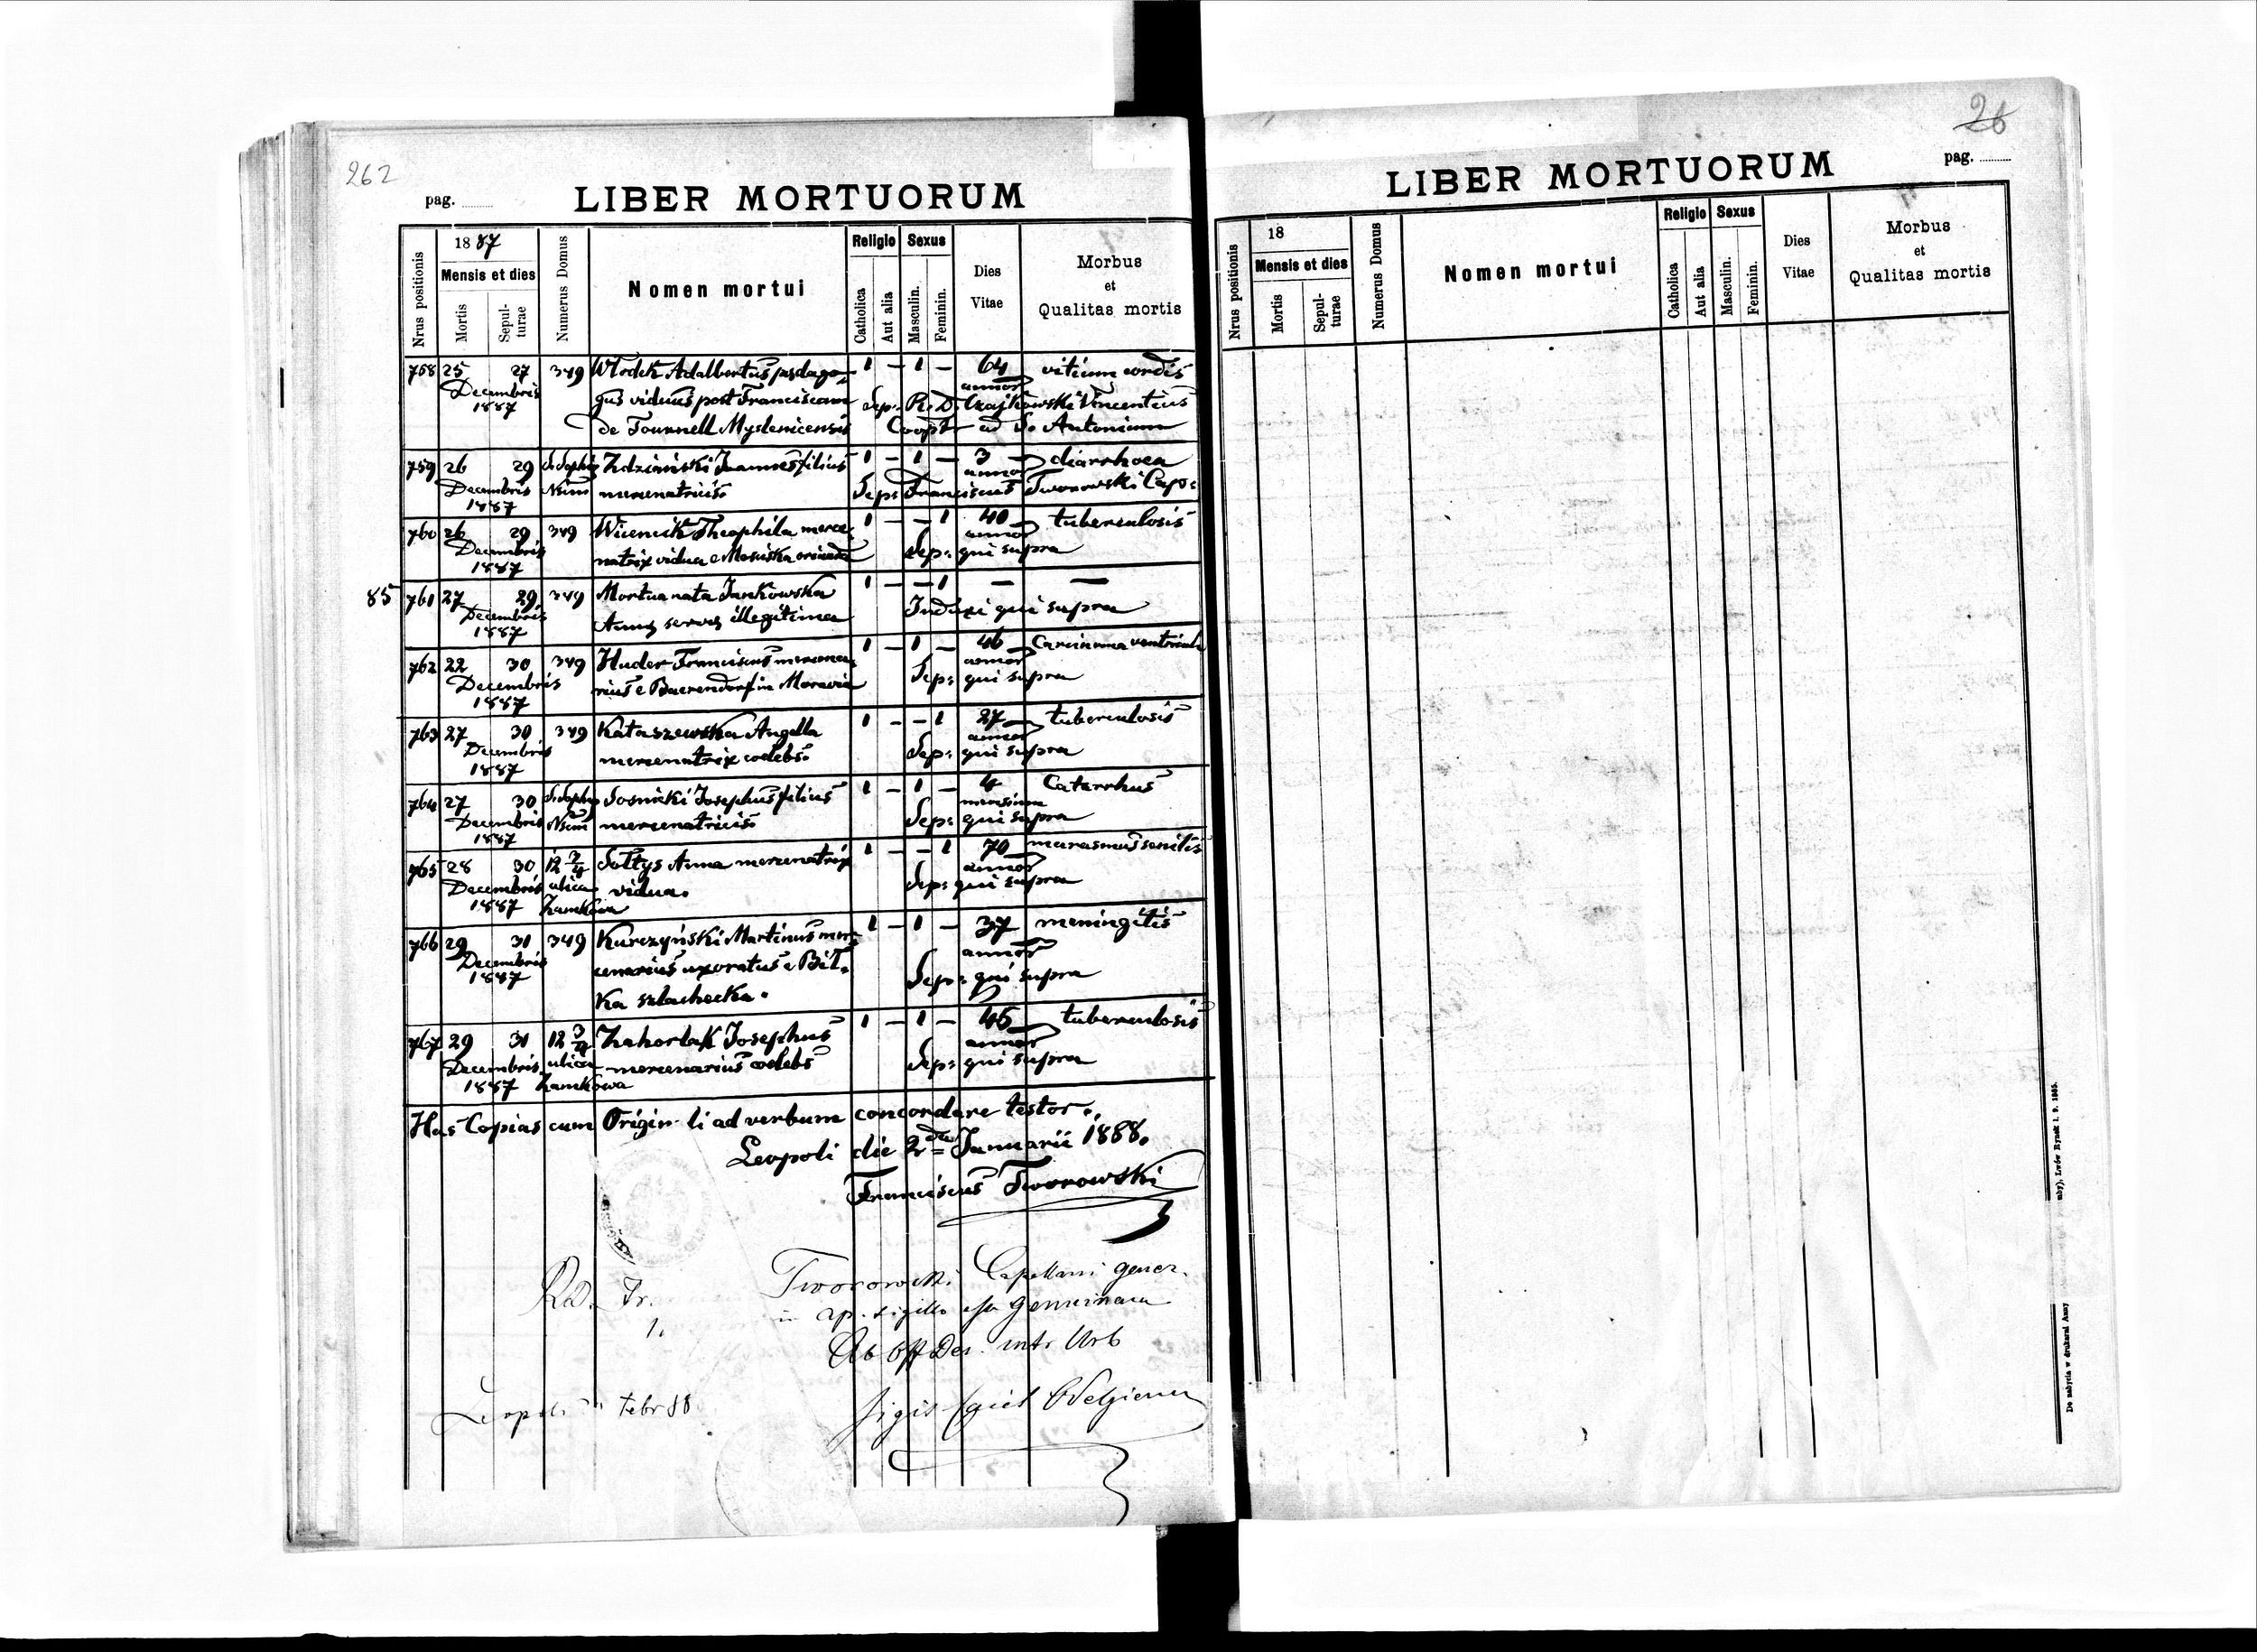 262
pag.
LIBER MORTUORUM
Nrus positionis
1887
Mensis et dies
Mortis
Sepul-
turae
Numerus Domus
Nomen mortui
Religio
Catholica
Aut alia
Sexus
Masculin.
Feminin.
Dies
Vitae
Morbus
et
Qualitas mortis
758 25 27 349 Włodek Adalbertus pædago- 1 – 1 – 64 vitium cordis
Decembris 1887 gus viduus post Franciscam annor Sep: R. D. Czajkowski Vincentius
de Tournell Myslenicensis Coop ad S. Antonium
759 26 29 Zdziański Joannes filius 1 – 1 – 3 diarrhoea
Decembris 1887 mercenatricis annor Sep: Franciscus Tworowski Cap:
760 26 29 349 Wicencik Theophila merce- 1 – – 1 40 tuberculosis
Decembris 1887 natrix vidua e Mosciska oriunda annor Sep: qui supra
85 761 27 29 349 Mortua nata Jankowska 1 – – 1 – –
Decembris 1887 Annæ servæ illegitima Induxi qui supra
762 22 30 349 Huder Franciscus mercena- 1 – 1 – 46 Carcinoma ventriculi
Decembris 1887 rius e Baerendorf in Moravia annor Sep: qui supra
763 27 30 349 Kataszewska Angella 1 – – 1 27 tuberculosis
Decembris 1887 mercenatrix coelebs. annor Sep: qui supra
764 27 30 Sosnicki Josephus filius 1 – 1 – 4 Catarrhus
Decembris 1887 mercenatricis mensium Sep: qui supra
765 28 30 12 2/4 Sołtys Anna mercenatrix 1 – – 1 70 marasmus senilis
Decembris 1887 ulica Zamkowa vidua. annor Sep: qui supra
766 29 31 349 Kurczyński Martinus mer- 1 – 1 – 37 meningitis
Decembris 1887 cenarius uxoratus e Bił- annor
ka szlachecka. Sep: qui supra
767 29 31 12 Zahorlak Josephus 1 – 1 – 45 tuberculosis
Decembris 1887 ulica Zamkowa mercenarius coelebs annor Sep: qui supra
Has Copias cum Origin li ad verbum concordare testor.
Leopoli die 2 Januarii 1888.
Franciscus Tworowski
RD. Fr. Tworowski Capellani gener.
sigillo genuinam
Urb
Leopoli Febr 88
26
pag.
LIBER MORTUORUM
Nrus positionis
18
Mensis et dies
Mortis
Sepul-
turae
Numerus Domus
Nomen mortui
Religio
Catholica
Aut alia
Sexus
Masculin.
Feminin.
Dies
Vitae
Morbus
et
Qualitas mortis
Do nabycia w drukarni Anny
Lwów Rynek l. 9. 1885.